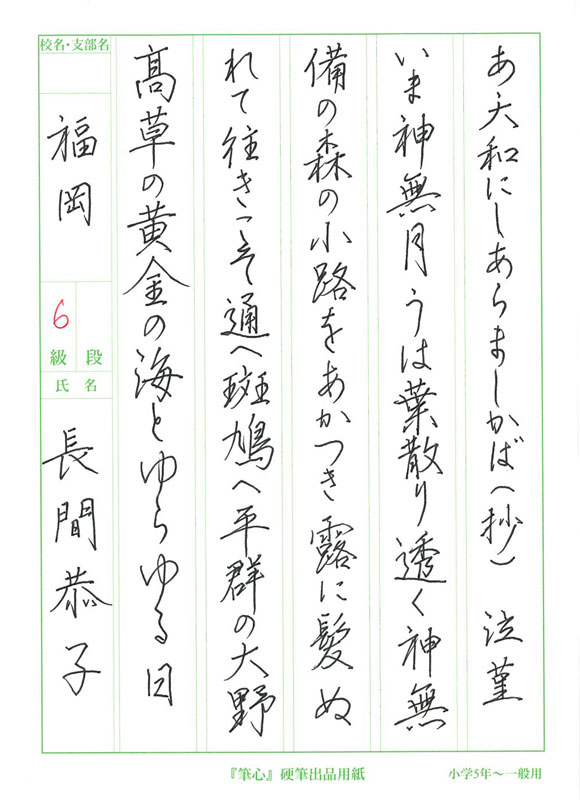 あゝ大和にしあらましかば(抄) 泣菫
いま神無月うは葉散り透く神無
備の森の小路をあかつき露に髪ぬ
れて往きこそ通へ斑鳩へ平群の大野
高草の黄金の海とゆらゆる日
校名・支部名
福岡
6
級 段
氏 名
長間恭子
『筆心』硬筆出品用紙
小学5年〜一般用